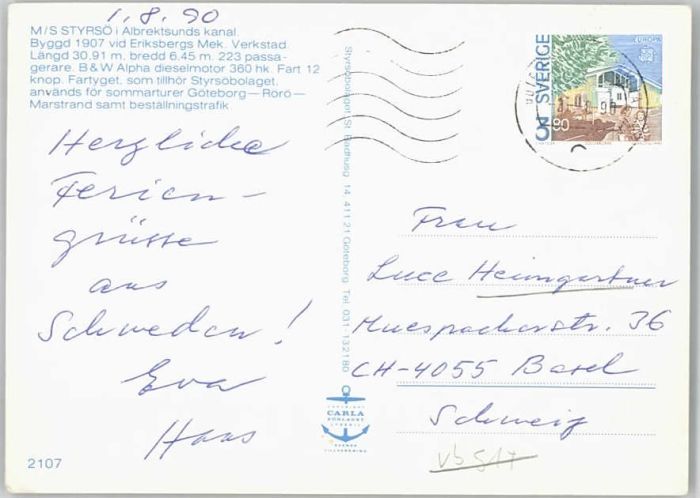 1.8.90
M/S STYRSÖ i Albrektsunds kanal.
Byggd 1907 vid Eriksbergs Mek. Verkstad.
Längd 30.91 m, bredd 6.45 m. 223 passa-
gerare. B & W Alpha dieselmotor 360 hk. Fart 12
knop. Fartyget, som tillhör Styrsöbolaget,
används för sommarturer Göteborg—Rörö—
Marstrand samt beställningstrafik
Herzliche
Ferien-
grüsse
aus
Schweden!
Eva
Haas
2107
Styrsöbolaget, St. Badhusg. 14, 411 21 Göteborg. Tel. 031-132180
CARLA
FÖRLAGET
EUROPA
SVERIGE
Frau
Luce Heimgartner
Muespacherstr. 36
CH-4055 Basel
Schweiz